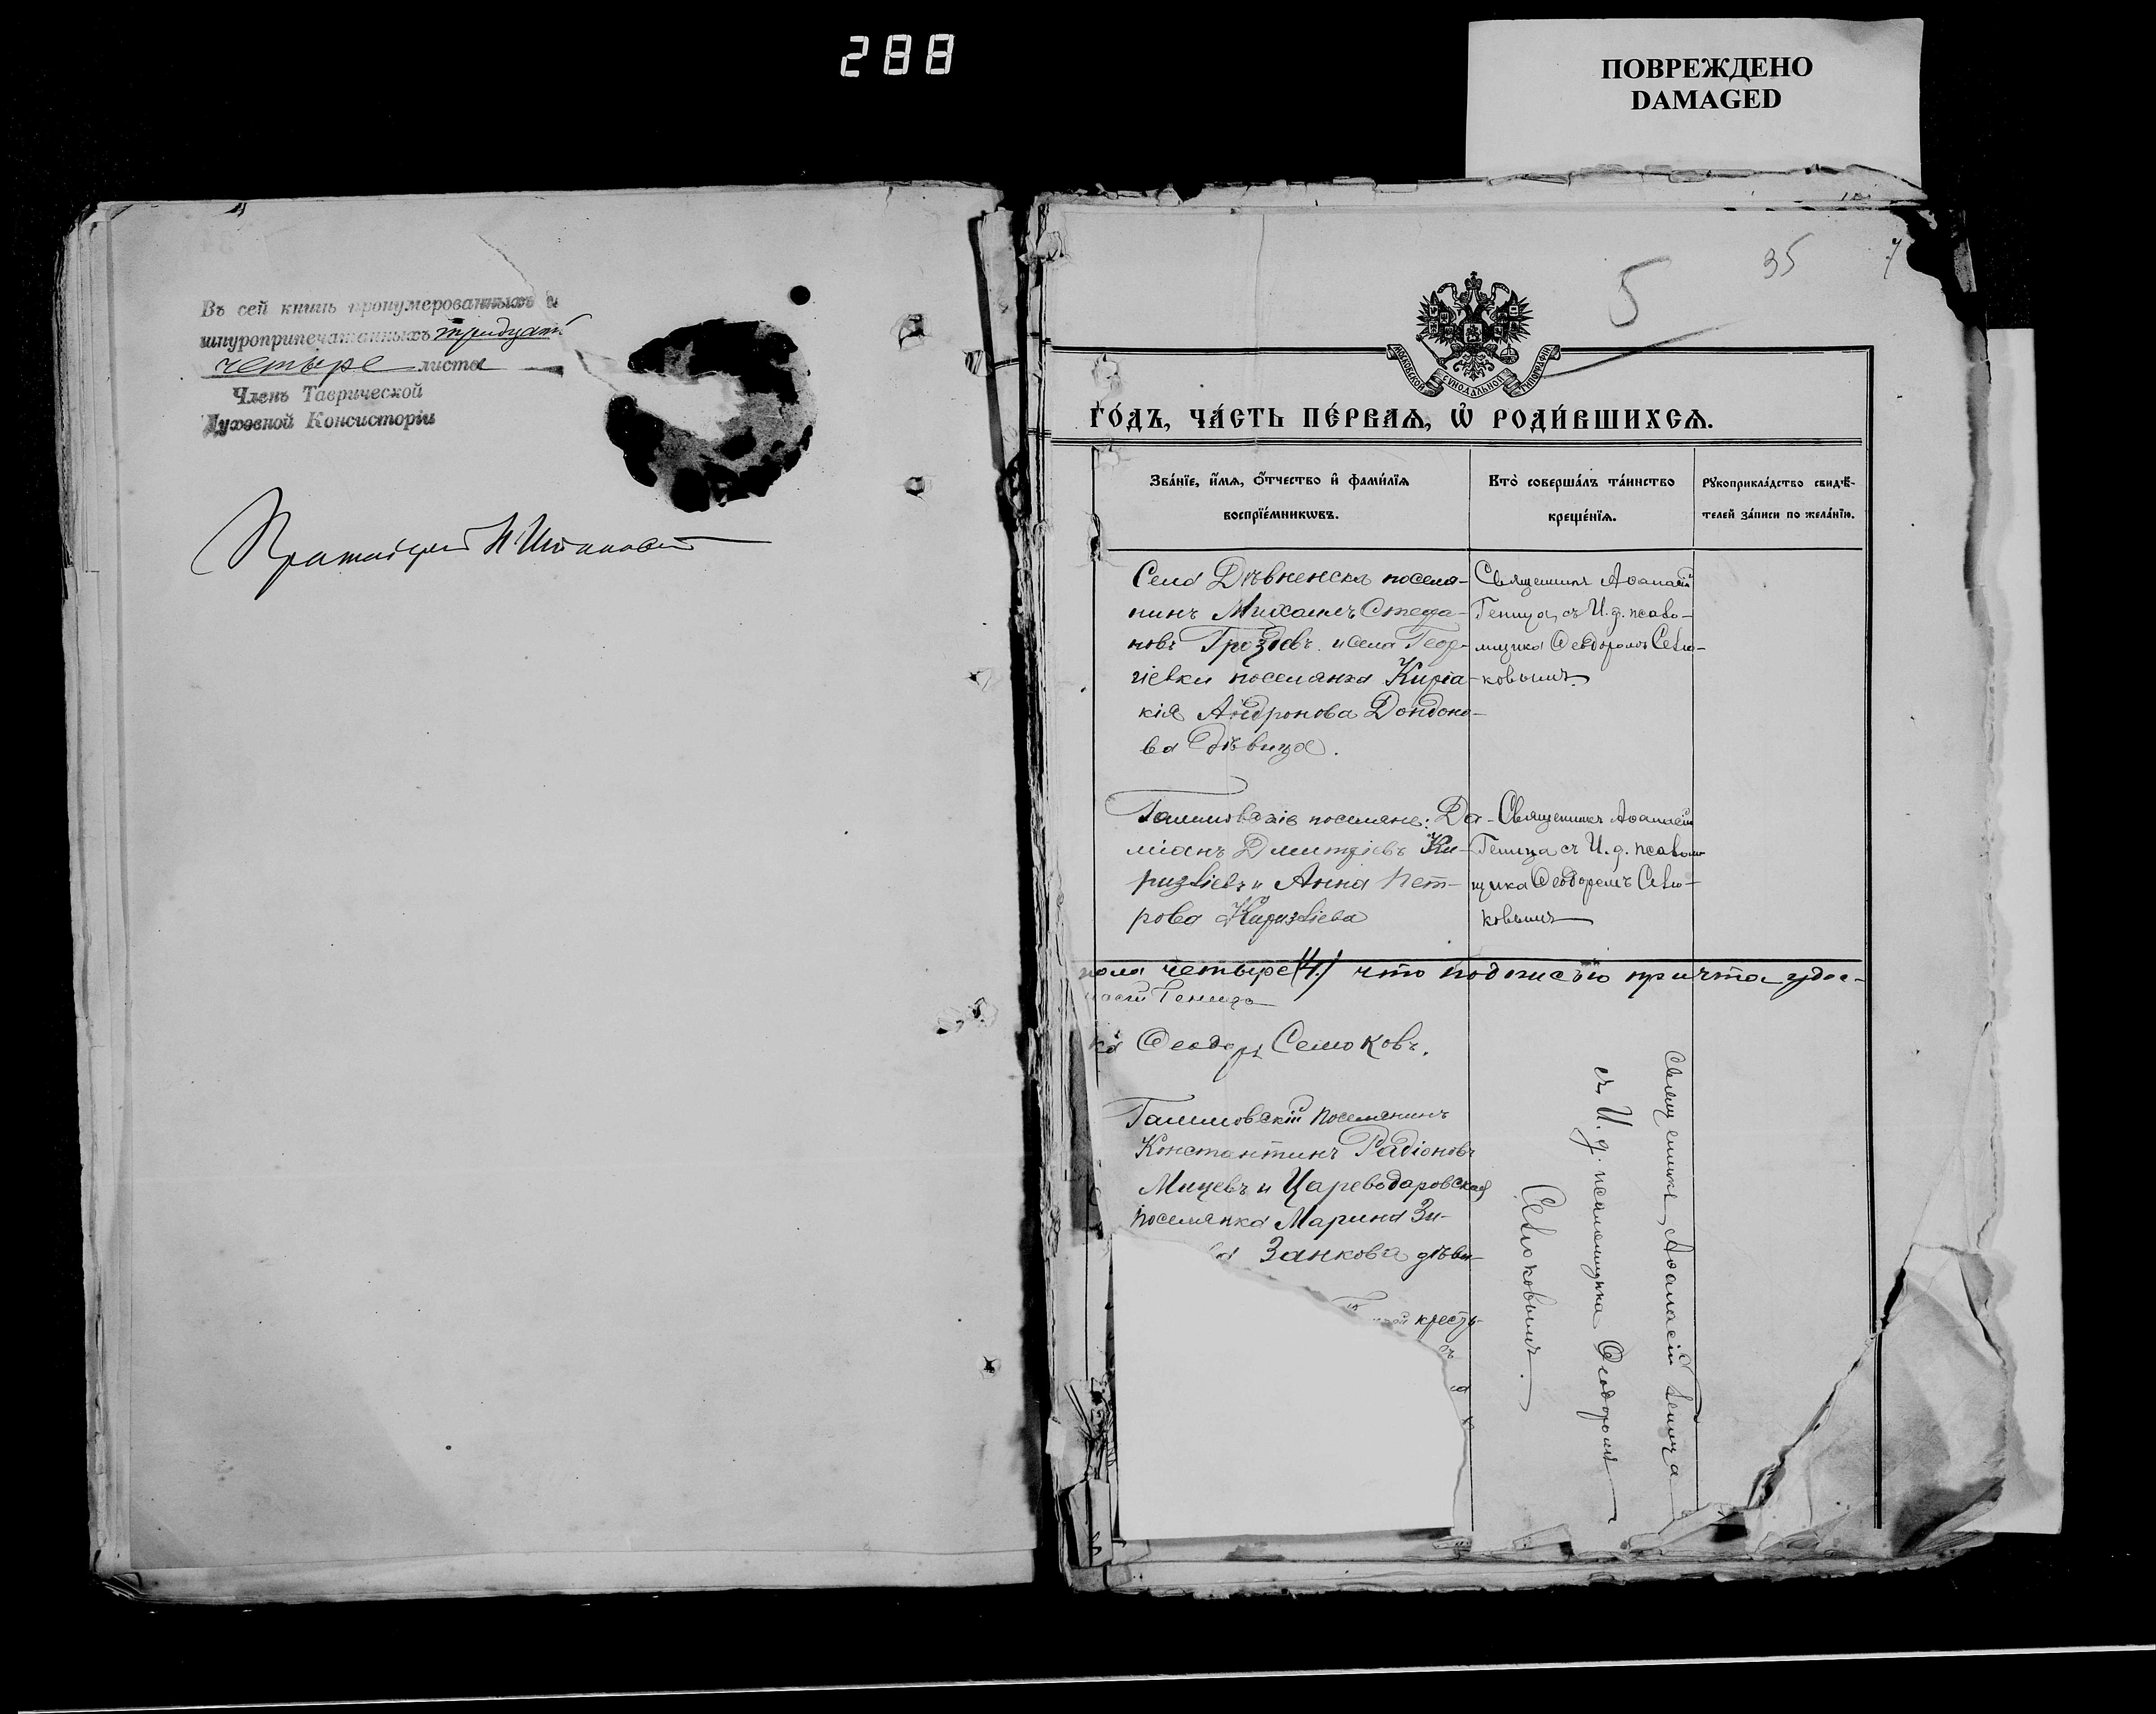 288
ПОВРЕЖДЕНО
DAMAGED
Въ сей книгѣ пронумерованныхъ и
шнуроприпечатанныхъ тридцать
четыре листа
Членъ Таврической
Духовной Консисторіи
Протоіерей Н
5
35
МОСКОВСКОЙ СѴНОДАЛЬНОЙ ТИПОГРАФІИ
го́дъ, ча́сть пе́рваѧ, ѡ҆ роди́вшихсѧ.
Зва́нїе, и҆́мѧ, ѻ҆́тчество и҆ фами́лїѧ
воспрїе́мникѡвъ.
Кто̀ соверша́лъ та́инство
креще́нїѧ.
Рꙋкоприкла́дство свидѣ́-
телей за́писи по жела́нїю.
Села Дѣвненска поселя-
нинъ Михаилъ Стефа-
новъ Гроздевъ и села Геор-
гіевки поселянка Киріа-
кія Андронова Дондоно-
ва дѣвица.
Священникъ Аѳанасій
Геница, съ И. д. псало-
мщика Ѳеодоромъ Севю-
ковымъ.
Гаммовскіе поселяне: Да-
міанъ Дмитріевъ Ки-
ризліевъ и Анна Пет-
рова Киризліева
Священникъ Аѳанасій
Геница съ И. д. псалом-
щика Ѳеодоромъ Севю-
ковымъ
пола четыре (4.) что подписью причта удос-
насій Геница
ка Ѳеодоръ Семоковъ.
Гаммовскій поселянинъ
Константинъ Радіоновъ
Мицевъ и Цареводаровская
поселянка Марина Зи-
ва Занкова дѣви-
кресть-
Священникъ Аѳанасій Геница
съ И. д. псаломщика Ѳеодоромъ
Севюковымъ.